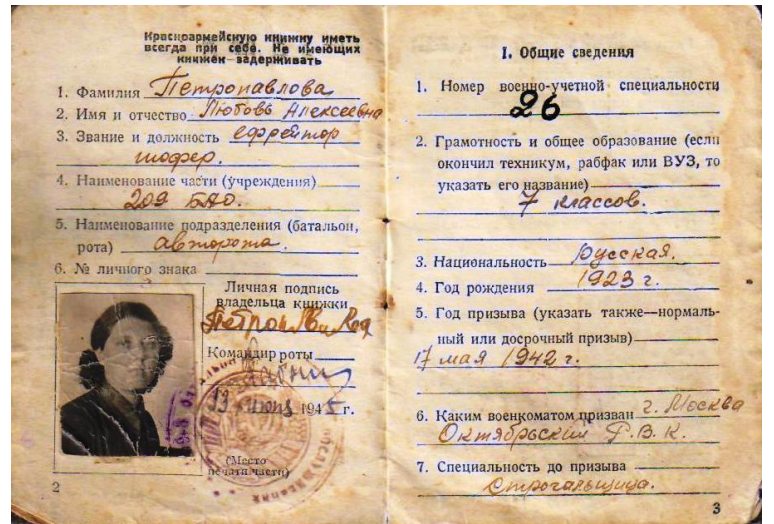 Красноармейскую книжку иметь
всегда при себе. Не имеющих
книжек задерживать
1. Фамилия Петропавлова
2. Имя и отчество Любовь Алексеевна
3. Звание и должность ефрейтор
шофер.
4. Наименование части (учреждения)
209 БАО.
5. Наименование подразделения (батальон,
рота) авторота.
6. № личного знака
Личная подпись
владельца книжки
Командир роты
19 июня 1945 г.
(Место
печати части)
2
I. Общие сведения
1. Номер военно-учетной специальности
26
2. Грамотность и общее образование (если
окончил техникум, рабфак или ВУЗ, то
указать его название)
7 классов.
3. Национальность русская.
4. Год рождения 1923 г.
5. Год призыва (указать также—нормаль-
ный или досрочный призыв)
17 мая 1942 г.
6. Каким военкоматом призван г. Москва
Октябрьский Р.В.К.
7. Специальность до призыва
Строгальщица.
3